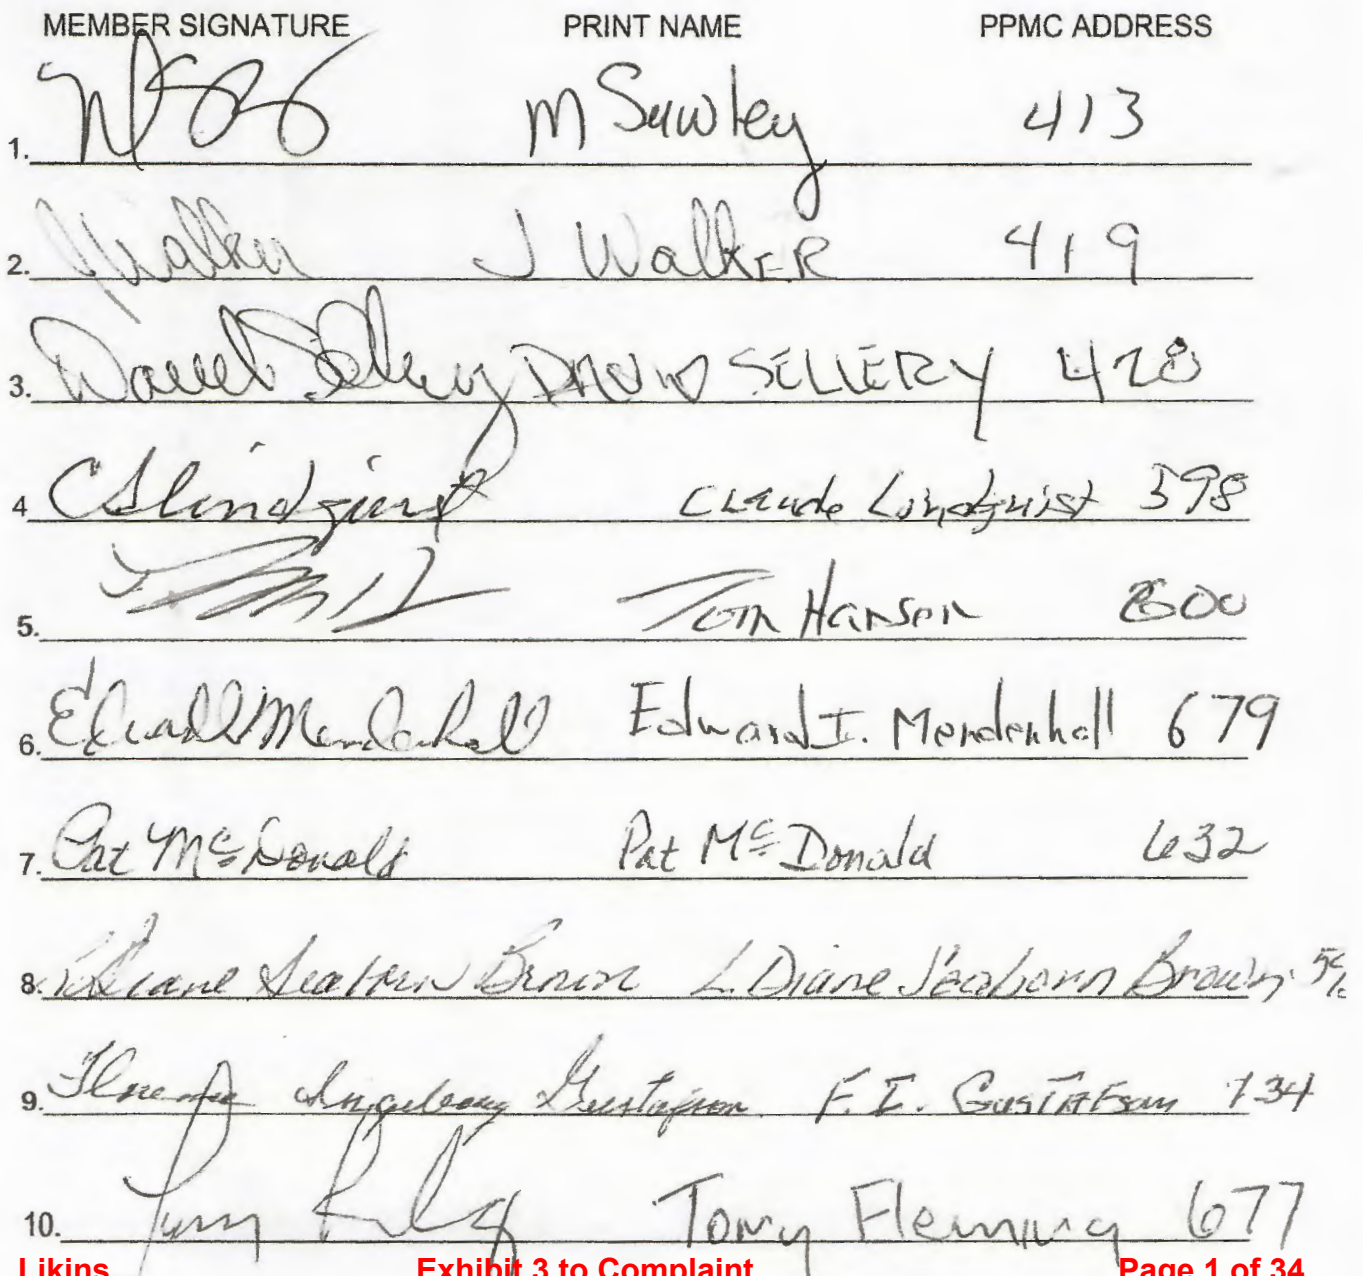 MEMBER SIGNATURE PRINT NAME PPMC ADDRESS
1. M Sawley 413
2. JWalker J WalkER 419
3. David Sellery DAVID SELLERY 428
4 CSLindquist Claude Lindquist 398
5. Tom Hansen
6. Edward Mendenhall Edward I. Mendenhall 679
7. Pat McDonald Pat McDonald 632
8. L Diane Seaborn Brown L. Diane Seaborn Brown
9. Ingeborg Gustafson F. I. GUSTAFSON 734
10. Tony Fleming 677
Likins Exhibit 3 to Complaint Page 1 of 34